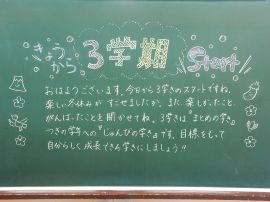 きょうから 3学期 Start
おはようございます。今日から3学きのスタートですね。
楽しい冬休みがすごせましたか。また、楽しかったこと、
がんばったことを聞かせてね。3学きは"まとめの学き"
つぎの学年への"じゅんびの学き"です。目標をもって
自分らしく成長できる学きにしましょう!!